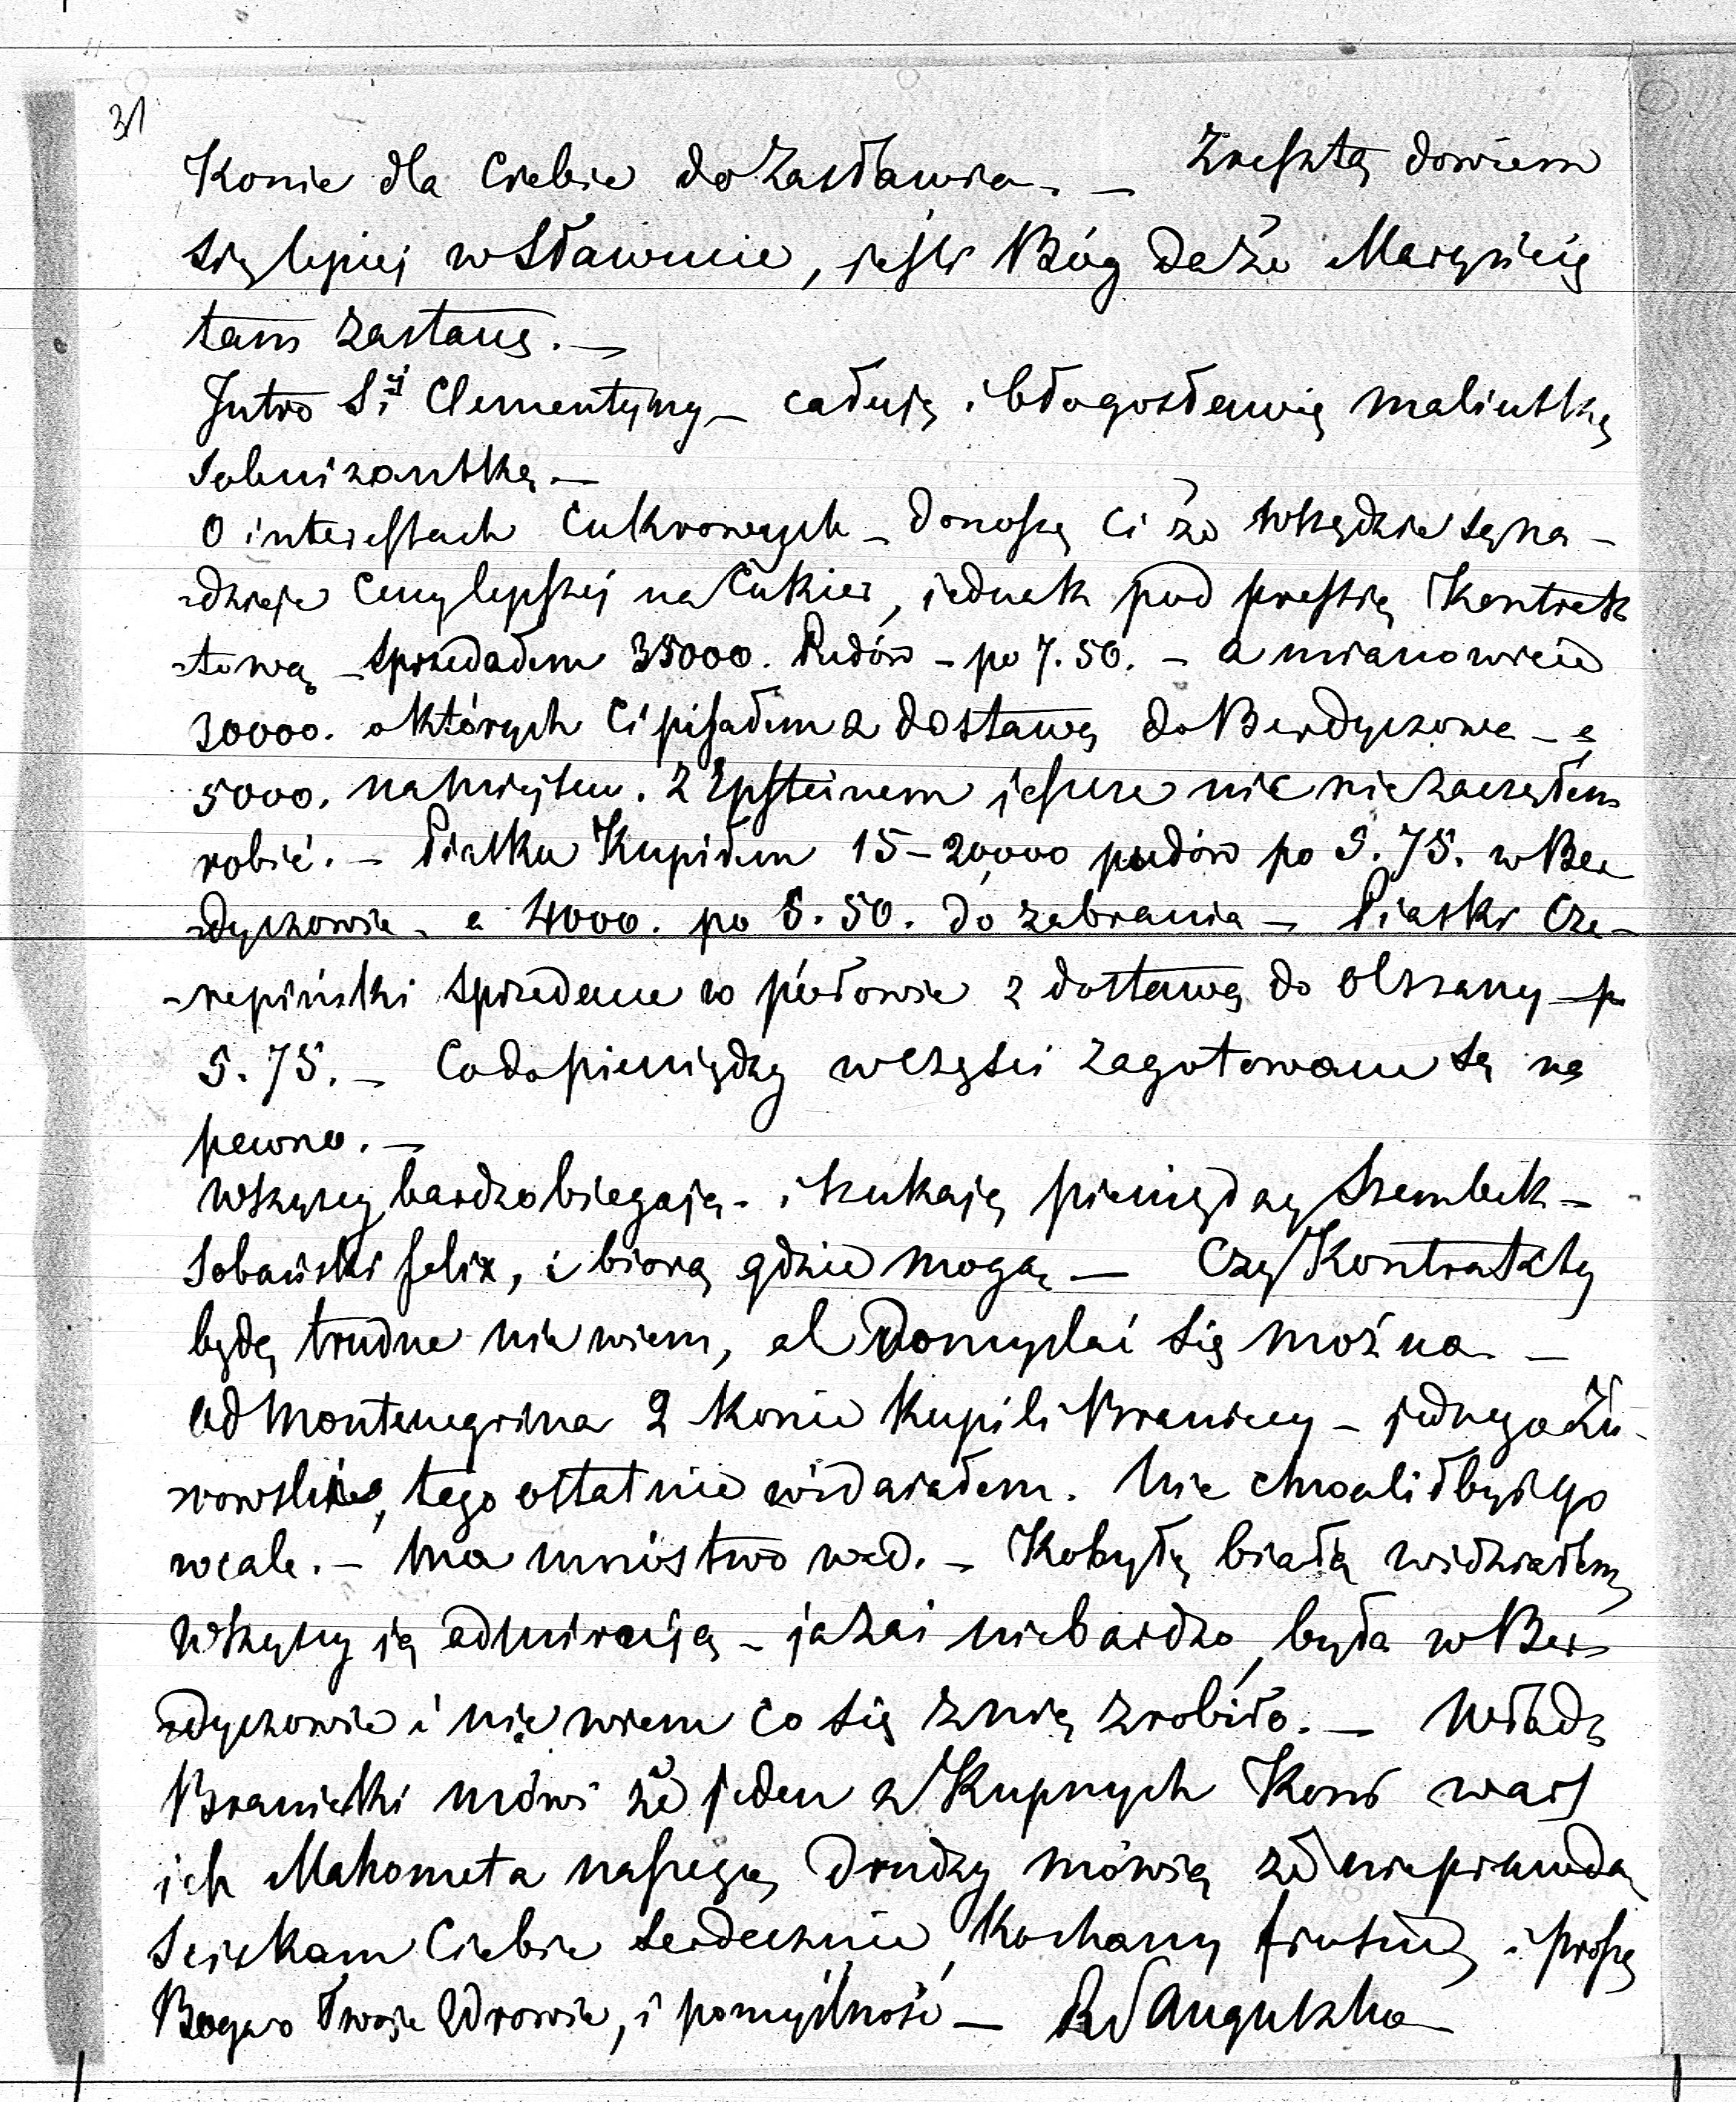 31
Konie dla Ciebie do Zasławia. — Zresztą dowiem
się lepiej w Sławucie, jeśli Bóg da że Marysieię
tam zastanę. —
Jutro S<sup>ej</sup> Clementyny — całuję i błogosławię maliutką
Solenizantkę. —
O interessach Cukrowych — donoszę Ci że wszędzie są na-
-dzieje Ceny lepszej na Cukier, jednak pod pressią Kontrak
-tową — sprzedałem 35000. Pudów — po 7.50. — a mianowicie
30000. o których Ci pisałem z dostawą do Berdyczowa — a
5000. na miejscu. Z Epsteinem jeszcze nic nie zacząłem
robić. — Piasku Kupiłem 15–20,000 pudów po 5.75. w Ber
-dyczowie — a 4000. po 5.50. do zabrania — Piaski Cze-
-repiński sprzedane w połowie z dostawą do Olszany — po
5.75. — Co do pieniędzy w części zagotowane są na
pewno. —
Wszyscy bardzo biegają — i szukają pieniędzy Szembek —
Sobański felix, i biorą gdzie mogą — Czy Kontrakty
będą trudne nie wiem, al domyślać się można. —
Od Montenegrina 2 konie kupili Braniccy — jednego Żu-
-rowski, tego ostatnie widziałem. Nie chwaliłbyś go
wcale. — Ma mnóstwo wad. — Kobyłę białą widziałem,
wszyscy ją admirują — ja zaś nie bardzo, była w Ber
-dyczowie i nie wiem co się z nią zrobiło. — Władz
Branicki mówi że jeden z Kupnych Koni wart
ich Mahometa naszego, drudzy mówią że nieprawda,
Sciskam Ciebie serdecznie Kochany i proszę
Boga o Twoje Zdrowie, i pomyślność — R Sanguszko